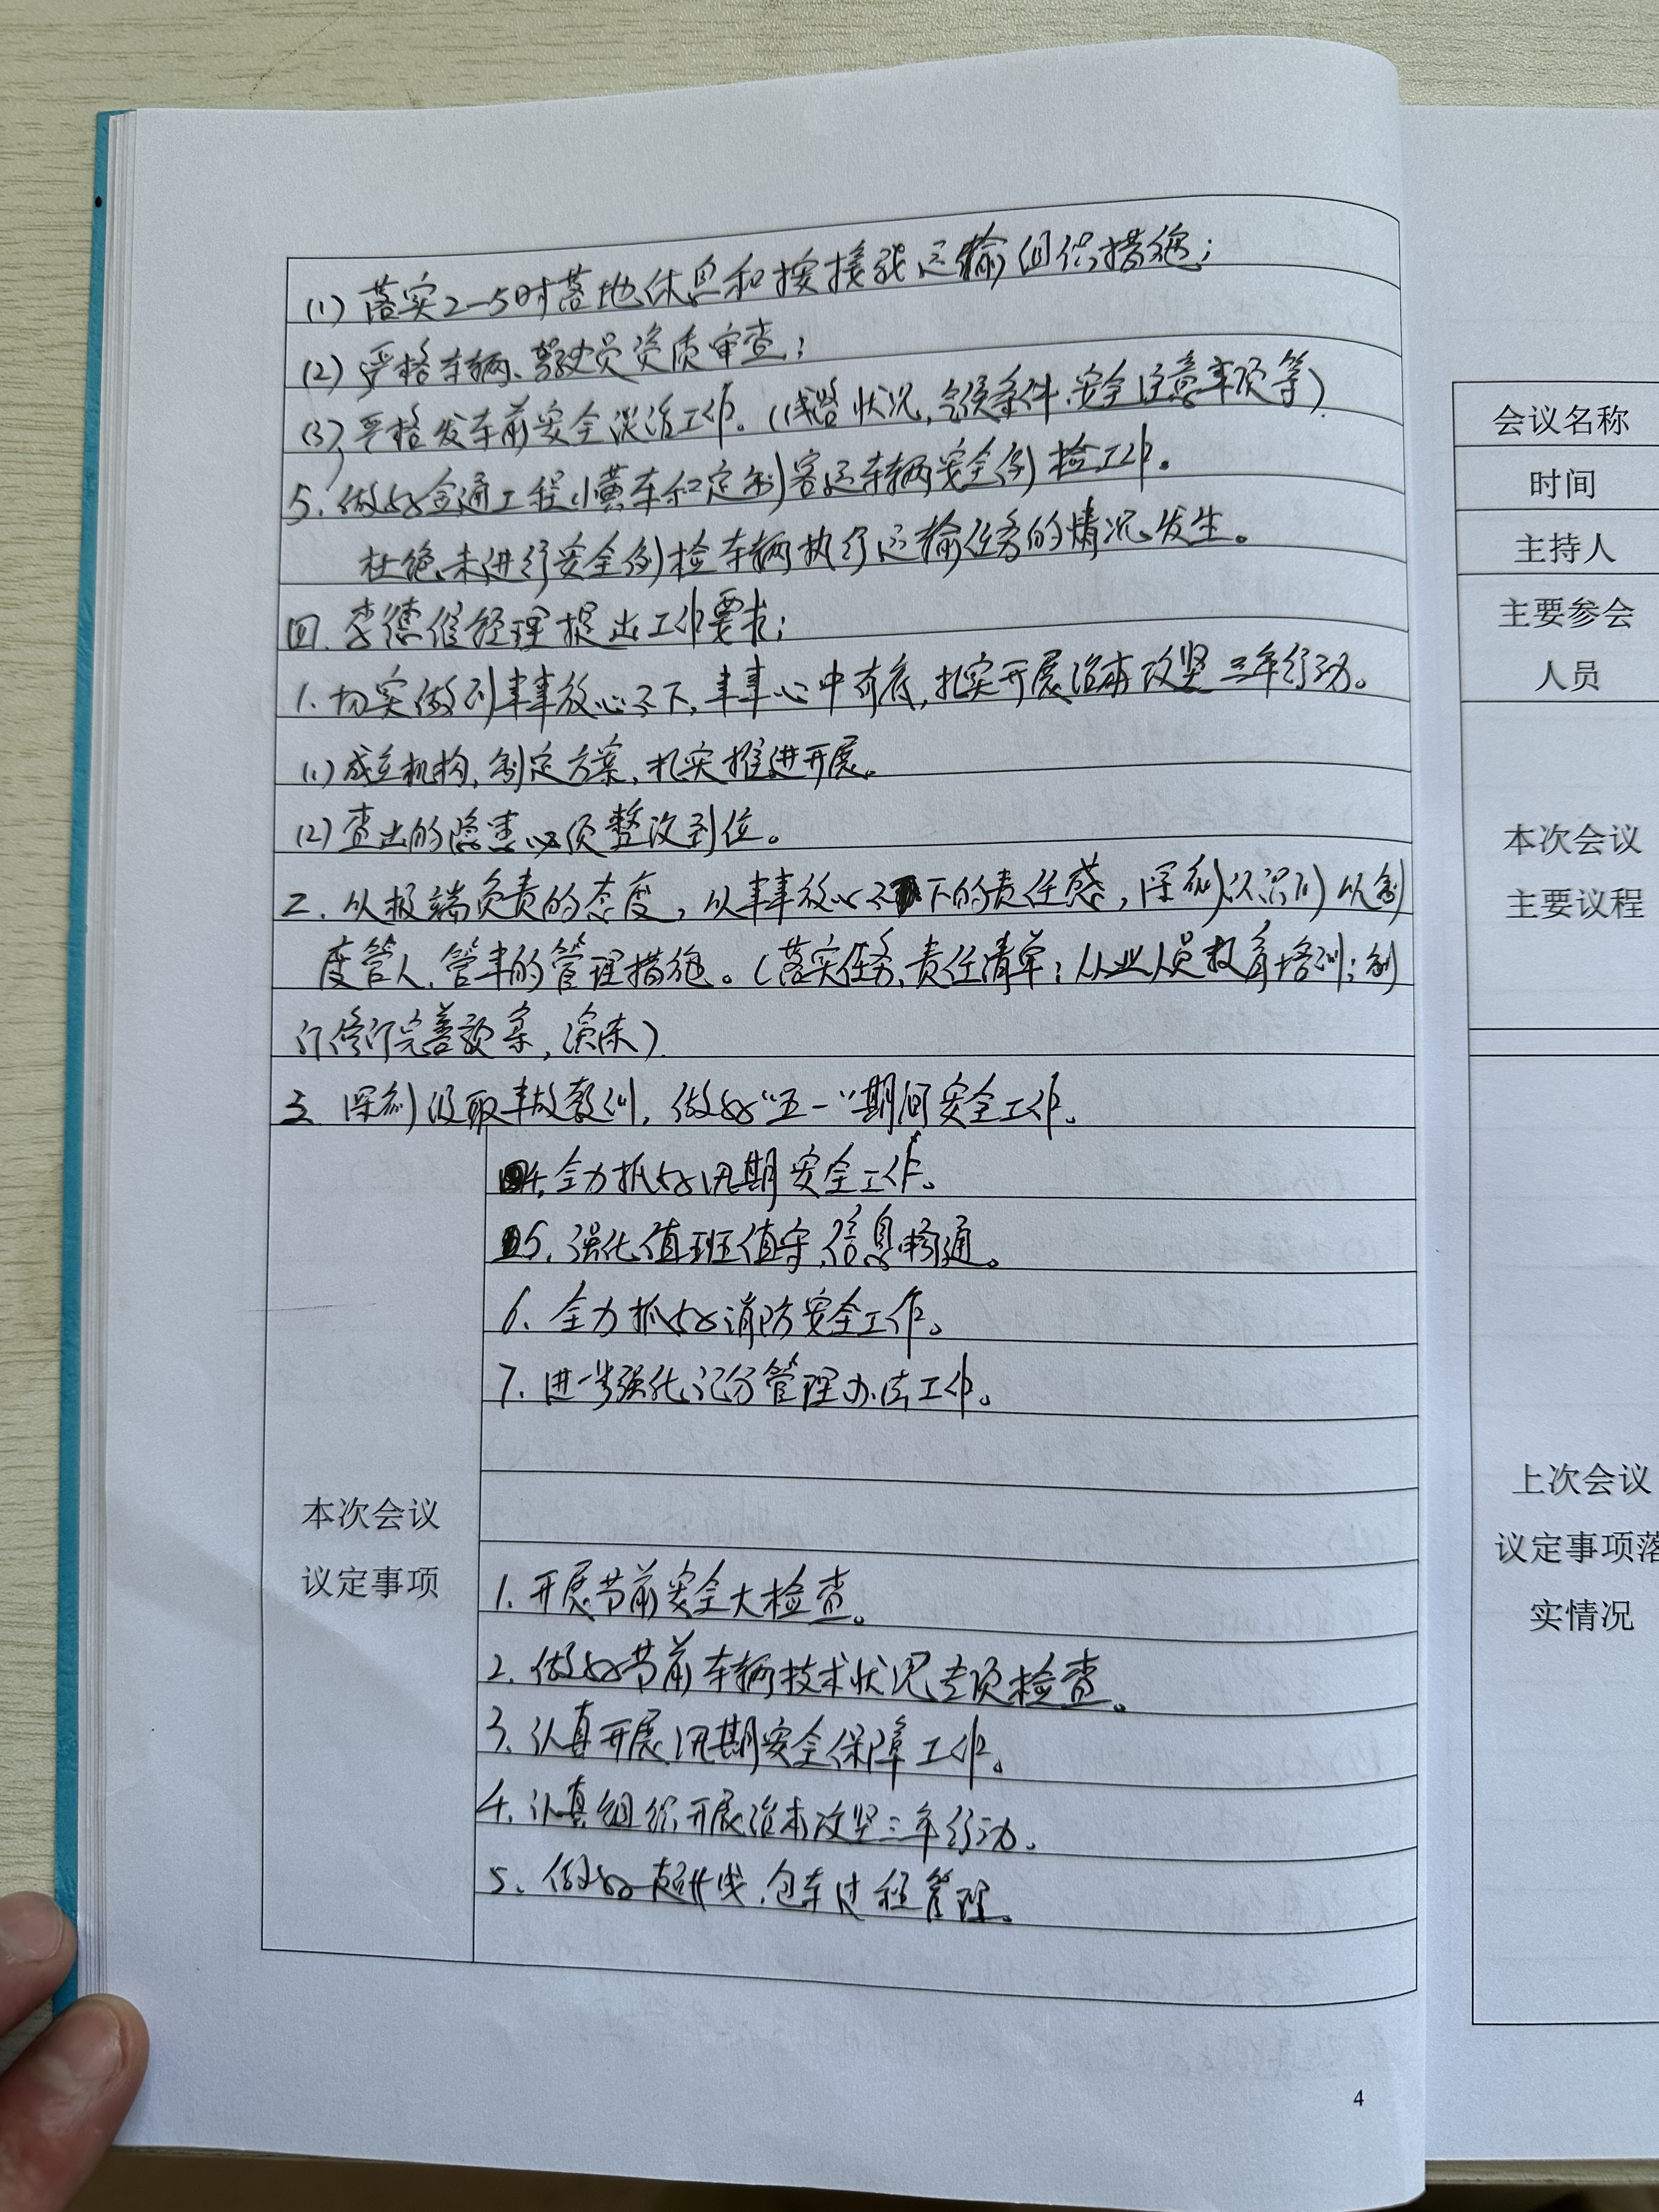 (1) 落实2-5时落地休息和按接驳运输组织措施；
(2) 严格车辆、驾驶员资质审查；
(3) 严格发车前安全谈话工作。(线路状况，气候条件、安全注意事项等)
5. 做好金通工程小黄车和定制客运车辆安全例检工作。
杜绝未进行安全例检车辆执行运输任务的情况发生。
四. 李德俊经理提出工作要求；
1. 切实做到事事放心不下，事事心中有底，扎实开展治本攻坚三年行动。
(1) 成立机构，制定方案，扎实推进开展。
(2) 查出的隐患必须整改到位。
二. 以极端负责的态度，以事事放心不下的责任感，深刻认识到以制
度管人、管事的管理措施。(落实任务、责任清单；从业人员教育培训；制
订修订完善预案，演练)
三. 深刻汲取事故教训，做好“五一”期间安全工作。
4. 全力抓好汛期安全工作。
5. 强化值班值守，信息畅通。
6. 全力抓好消防安全工作。
7. 进一步强化记分管理办法工作。
本次会议
议定事项
1. 开展节前安全大检查。
2. 做好节前车辆技术状况专项检查。
3. 认真开展汛期安全保障工作。
4. 认真组织开展治本攻坚三年行动。
5. 做好超长线、包车过程管理。
4
会议名称
时间
主持人
主要参会
人员
本次会议
主要议程
上次会议
议定事项落
实情况